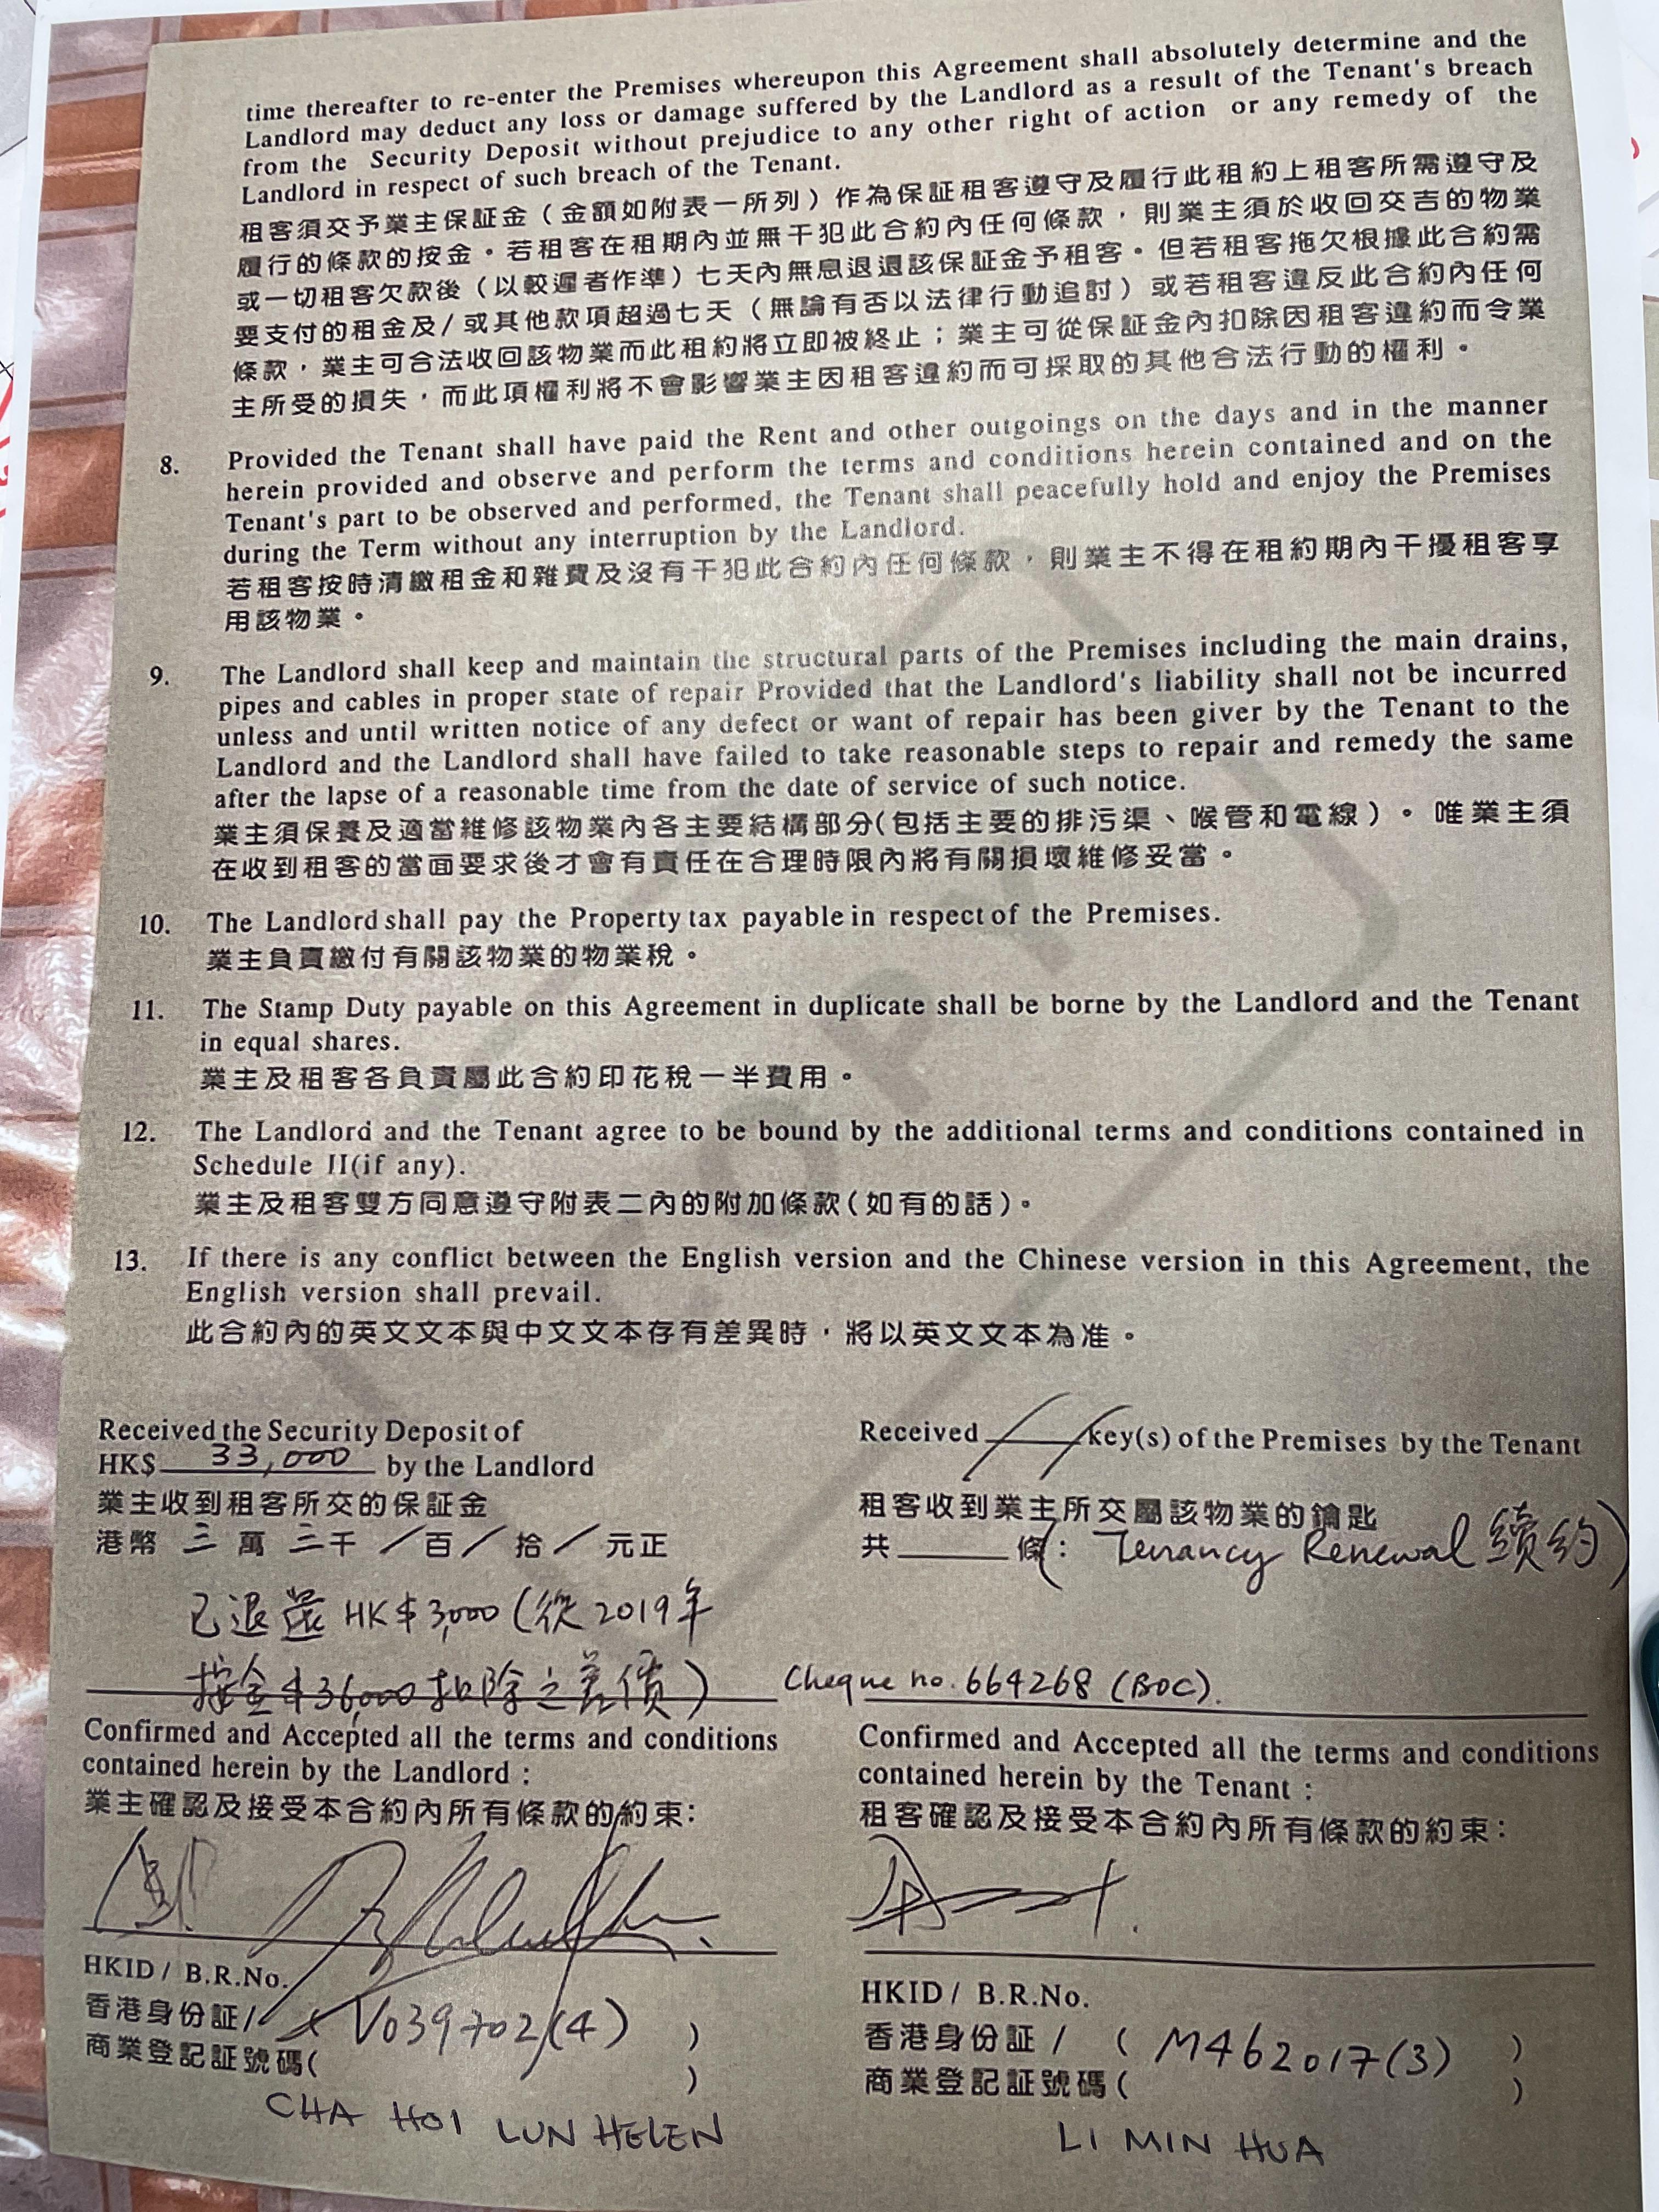 time thereafter to re-enter the Premises whereupon this Agreement shall absolutely determine and the
Landlord may deduct any loss or damage suffered by the Landlord as a result of the Tenant's breach
from the Security Deposit without prejudice to any other right of action or any remedy of the
Landlord in respect of such breach of the Tenant.
租客須交予業主保証金（金額如附表一所列）作為保証租客遵守及履行此租約上租客所需遵守及
履行的條款的按金。若租客在租期內並無干犯此合約內任何條款，則業主須於收回交吉的物業
或一切租客欠款後（以較遲者作準）七天內無息退還該保証金予租客。但若租客拖欠根據此合約需
要支付的租金及/或其他款項超過七天（無論有否以法律行動追討）或若租客違反此合約內任何
條款，業主可合法收回該物業而此租約將立即被終止；業主可從保証金內扣除因租客違約而令業
主所受的損失，而此項權利將不會影響業主因租客違約而可採取的其他合法行動的權利。
8. Provided the Tenant shall have paid the Rent and other outgoings on the days and in the manner
herein provided and observe and perform the terms and conditions herein contained and on the
Tenant's part to be observed and performed, the Tenant shall peacefully hold and enjoy the Premises
during the Term without any interruption by the Landlord.
若租客按時清繳租金和雜費及沒有干犯此合約內任何條款，則業主不得在租約期內干擾租客享
用該物業。
9. The Landlord shall keep and maintain the structural parts of the Premises including the main drains,
pipes and cables in proper state of repair Provided that the Landlord's liability shall not be incurred
unless and until written notice of any defect or want of repair has been giver by the Tenant to the
Landlord and the Landlord shall have failed to take reasonable steps to repair and remedy the same
after the lapse of a reasonable time from the date of service of such notice.
業主須保養及適當維修該物業內各主要結構部分(包括主要的排污渠、喉管和電線）。唯業主須
在收到租客的當面要求後才會有責任在合理時限內將有關損壞維修妥當。
10. The Landlord shall pay the Property tax payable in respect of the Premises.
業主負責繳付有關該物業的物業稅。
11. The Stamp Duty payable on this Agreement in duplicate shall be borne by the Landlord and the Tenant
in equal shares.
業主及租客各負責屬此合約印花稅一半費用。
12. The Landlord and the Tenant agree to be bound by the additional terms and conditions contained in
Schedule II(if any).
業主及租客雙方同意遵守附表二內的附加條款(如有的話)。
13. If there is any conflict between the English version and the Chinese version in this Agreement, the
English version shall prevail.
此合約內的英文文本與中文文本存有差異時，將以英文文本為准。
COPY
Received the Security Deposit of
HK$ 33,000 by the Landlord
業主收到租客所交的保証金
港幣 三 萬 三 千 / 百 / 拾 / 元正
已退還 HK$3,000 (從2019年
按金$36,000扣除之差價)
Received key(s) of the Premises by the Tenant
租客收到業主所交屬該物業的鑰匙
共 條 (: Tenancy Renewal 續約)
Cheque no. 664268 (BOC).
Confirmed and Accepted all the terms and conditions
contained herein by the Landlord :
業主確認及接受本合約內所有條款的約束:
HKID / B.R.No.
香港身份証/ V039702(4) )
商業登記証號碼( )
CHA HOI LUN HELEN
Confirmed and Accepted all the terms and conditions
contained herein by the Tenant :
租客確認及接受本合約內所有條款的約束:
HKID / B.R.No.
香港身份証 / ( M462017(3) )
商業登記証號碼( )
LI MIN HUA